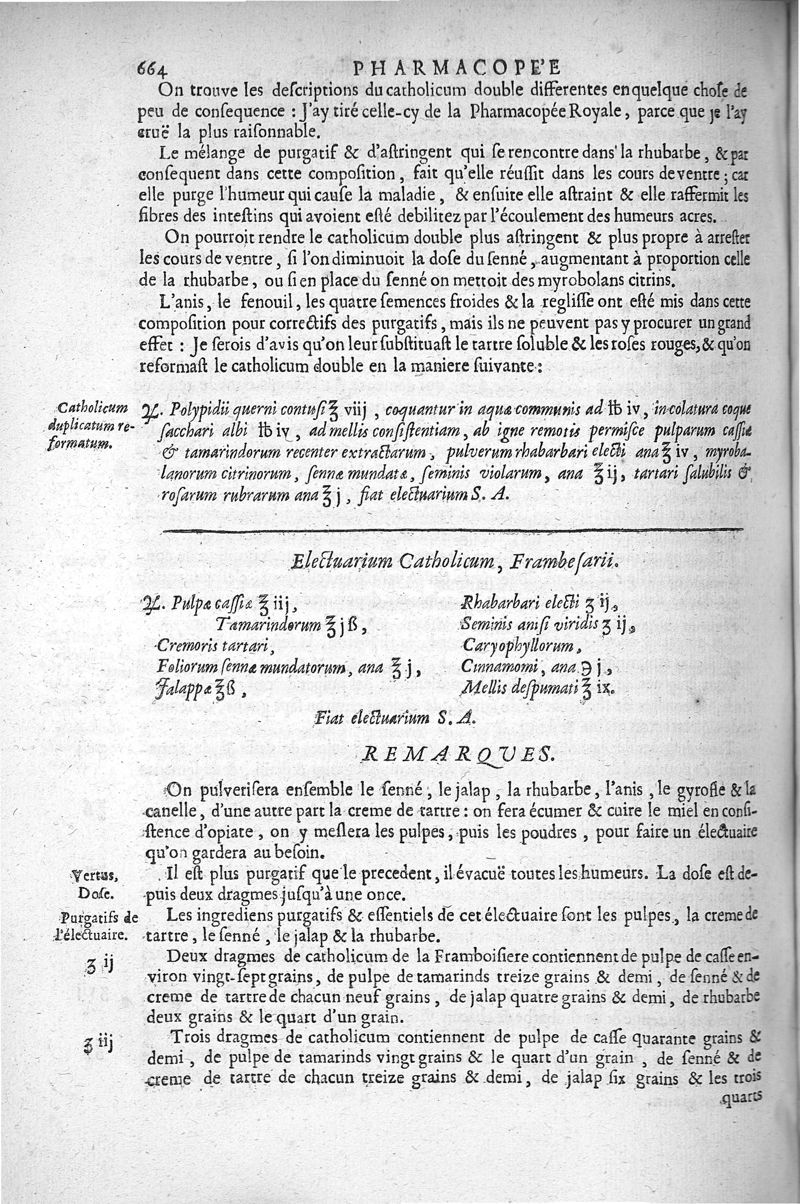 664 PHARMACOPE'E
On trouve les deſcriptions du catholicum double differentes en quelque choſe de
peu de conſequence : J'ay tiré celle-cy de la Pharmacopée Royale, parce que je l'ay
cruë la plus raiſonnable.
Le mêlange de purgatif & d'aſtringent qui ſe rencontre dans la rhubarbe, & par
conſequent dans cette compoſition, fait qu'elle réuſſit dans les cours de ventre ; car
elle purge l'humeur qui cauſe la maladie, & enſuite elle aſtraint & elle raffermit les
fibres des inteſtins qui avoient eſté debilitez par l'écoulement des humeurs acres.
On pourroit rendre le catholicum double plus aſtringent & plus propre à arreſter
les cours de ventre, ſi l'on diminuoit la doſe du ſenné, augmentant à proportion celle
de la rhubarbe, ou ſi en place du ſenné on mettoit des myrobolans citrins.
L'anis, le fenouil, les quatre ſemences froides & la regliſſe ont eſté mis dans cette
compoſition pour correctifs des purgatifs, mais ils ne peuvent pas y procurer un grand
effet : Je ſerois d'avis qu'on leur ſubſtituaſt le tartre ſoluble & les roſes rouges, & qu'on
reformaſt le catholicum double en la maniere ſuivante :
Catholicum
duplicatum re-
formatum.
♃. Polypidii querni contuſi ℥ viij, coquantur in aquæ communis ad ℔ iv, in colatura coque
ſacchari albi ℔ iv, ad mellis conſiſtentiam, ab igne remotis permiſce pulparum caſſiæ
& tamarindorum recenter extractarum, pulverum rhabarbari electi ana ℥ iv, myroba-
lanorum citrinorum, ſennæ mundatæ, ſeminis violarum, ana ℥ ij, tartari ſalubilis &
roſarum rubrarum ana ℥ j, fiat electuarium S. A.
Electuarium Catholicum, Frambeſarii.
♃. Pulpæ caſſiæ ℥ iij,
Tamarindorum ℥ j ß,
Cremoris tartari,
Foliorum ſennæ mundatorum, ana ℥ j,
Jalappæ ℥ ß,
Rhabarbari electi ʒ ij,
Seminis aniſi viridis ʒ ij,
Caryophyllorum,
Cinnamomi, ana ℈ j,
Mellis deſpumati ℥ ix.
Fiat electuarium S. A.
REMARQUES.
On pulveriſera enſemble le ſenné, le jalap, la rhubarbe, l'anis, le gyrofle & la
canelle, d'une autre part la creme de tartre : on fera écumer & cuire le miel en conſi-
ſtence d'opiate, on y meſlera les pulpes, puis les poudres, pour faire un électuaire
qu'on gardera au beſoin.
Vertus,
Doſe.
Il eſt plus purgatif que le precedent, il évacuë toutes les humeurs. La doſe eſt de-
puis deux dragmes juſqu'à une once.
Purgatifs de
l'électuaire.
Les ingrediens purgatifs & eſſentiels de cet électuaire ſont les pulpes, la creme de
tartre, le ſenné, le jalap & la rhubarbe.
ʒ ij
Deux dragmes de catholicum de la Framboiſiere contiennent de pulpe de caſſe en-
viron vingt-ſept grains, de pulpe de tamarinds treize grains & demi, de ſenné & de
creme de tartre de chacun neuf grains, de jalap quatre grains & demi, de rhubarbe
deux grains & le quart d'un grain.
ʒ iij
Trois dragmes de catholicum contiennent de pulpe de caſſe quarante grains &
demi, de pulpe de tamarinds vingt grains & le quart d'un grain, de ſenné & de
creme de tartre de chacun treize grains & demi, de jalap ſix grains & les trois
quarts